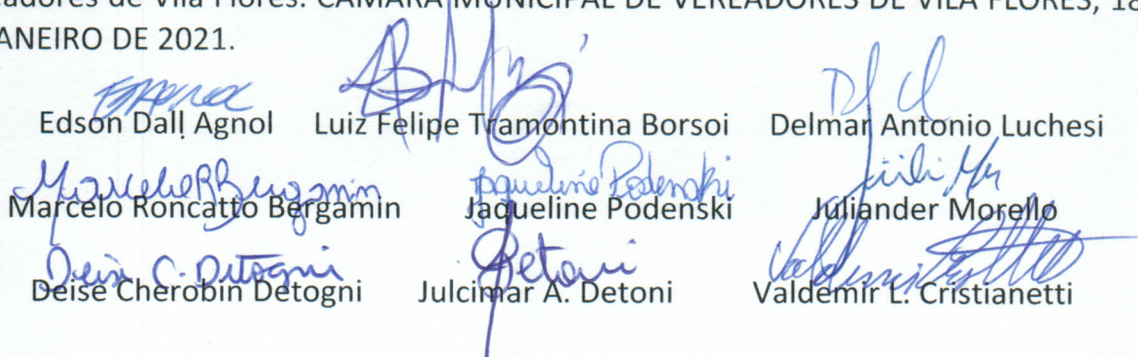 adores de Vila Flores. CÂMARA MUNICIPAL DE VEREADORES DE VILA FLORES, 18
ANEIRO DE 2021.
Edson Dall Agnol Luiz Felipe Tramontina Borsoi Delmar Antonio Luchesi
Marcelo R Bergamin Jaqueline Podenski
Marcelo Roncatto Bergamin Jaqueline Podenski Juliander Morello
Deise C. Detogni Detoni
Deise Cherobin Detogni Julcimar A. Detoni Valdemir L. Cristianetti